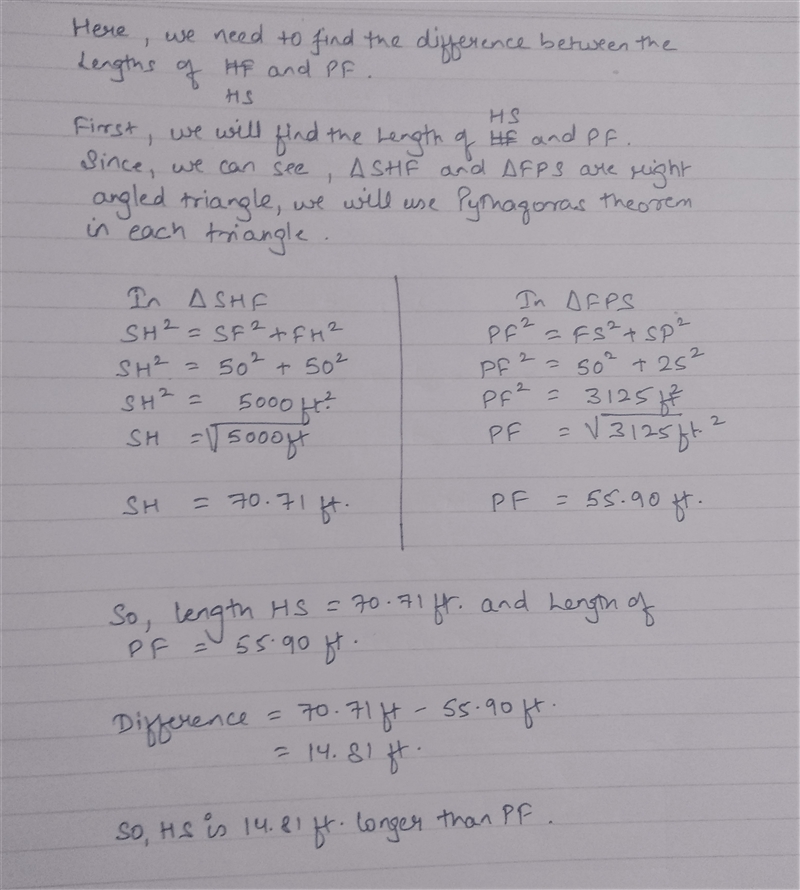 Here, we need to find the difference between the
Lengths of HF and PF.
HS
First, we will find the Length of HF and PF.
HS
Since, we can see, △SHF and △FPS are right
angled triangle, we will use Pythagoras theorem
in each triangle.
In △SHF
SH² = SF² + FH²
SH² = 50² + 50²
SH² = 5000 ft²
SH = √5000 ft
SH = 70.71 ft.
In △FPS
PF² = FS² + SP²
PF² = 50² + 25²
PF² = 3125 ft²
PF = √3125 ft²
PF = 55.90 ft.
So, length HS = 70.71 ft. and Length of
PF = 55.90 ft.
Difference = 70.71 ft - 55.90 ft.
= 14.81 ft.
So, HS is 14.81 ft. longer than PF.